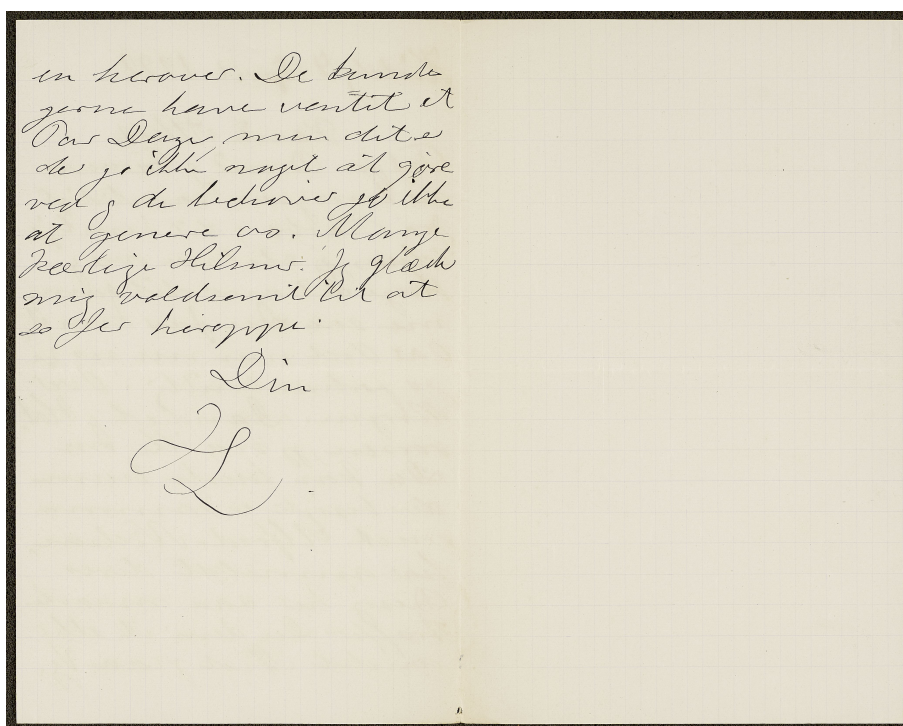 en herover. De kunde
gerne have ventet et
Par Dage, men det er
der jo ikke noget at gøre
ved og de behøver jo ikke
at genere os. Mange
kærlige Hilsner. Jeg glæder
mig voldsomt til at
se Jer heroppe.
Din
L